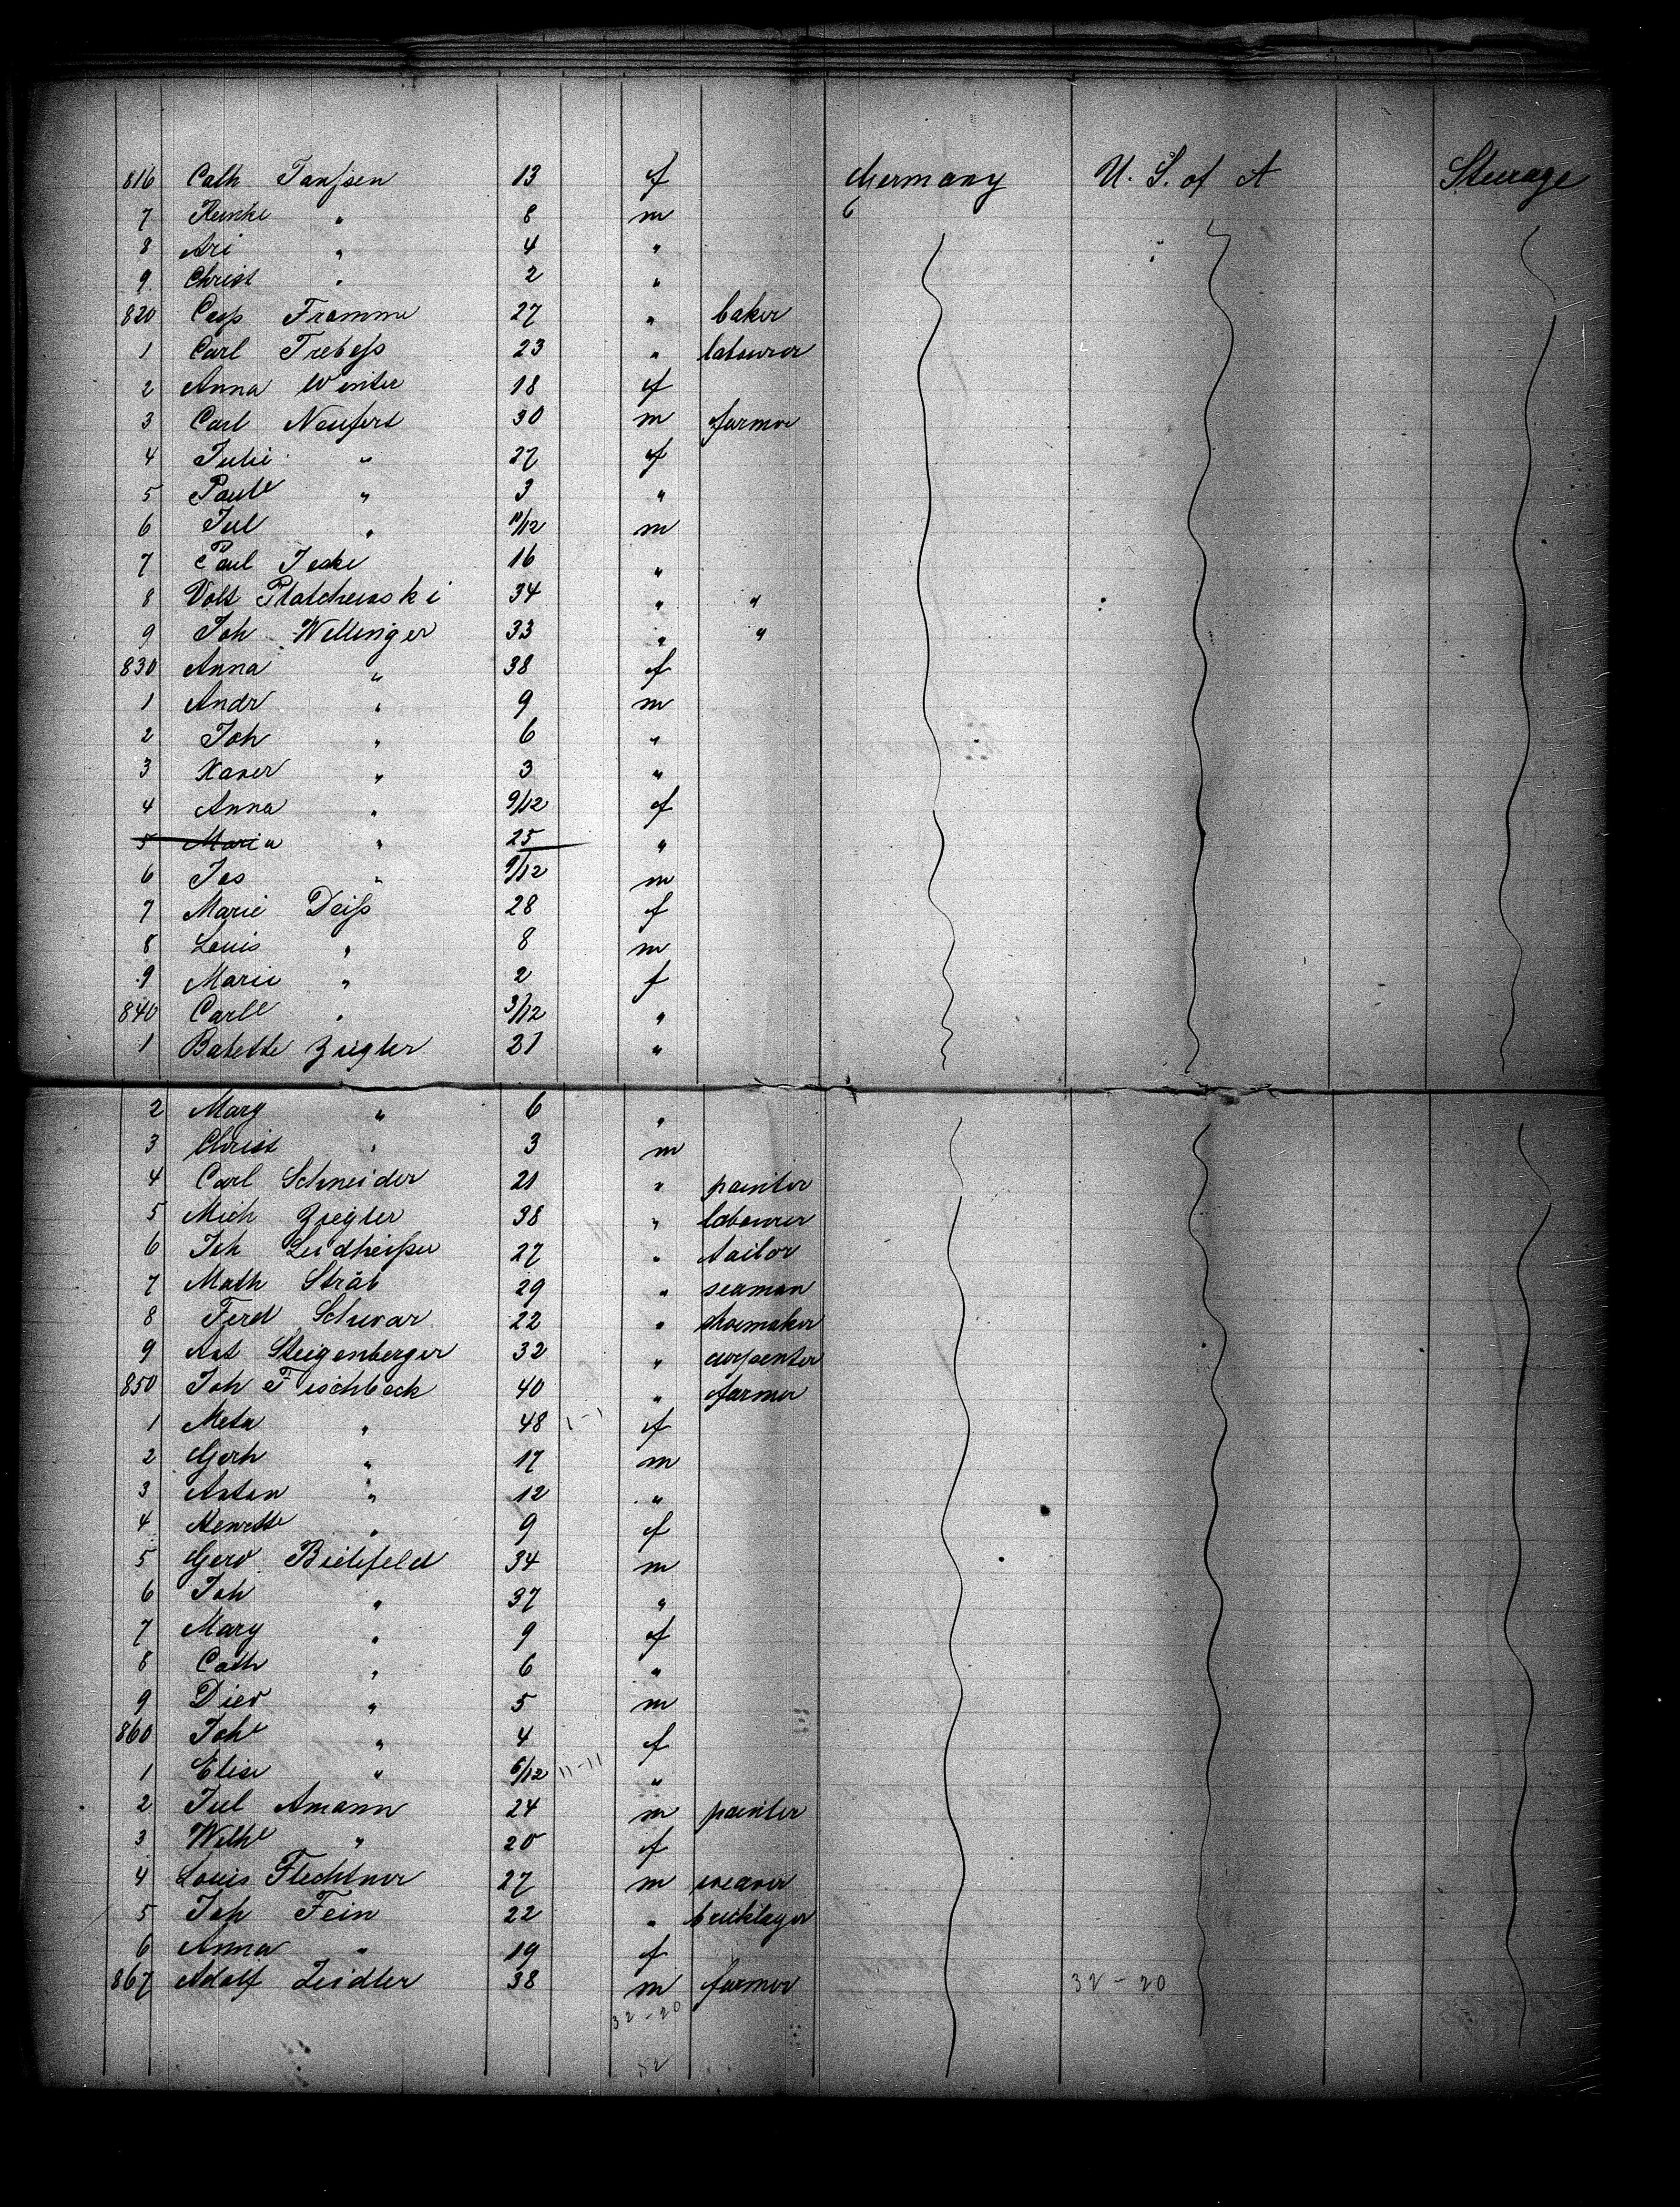 816 Cath Janssen 13 f Germany U. S. of A Steerage
7 Renke " 8 m
8 Ari " 4 "
9 Christ " 2 "
820 Casp Framme 27 " baker
1 Carl Trebess 23 " labourer
2 Anna Winter 18 f
3 Carl Neufert 30 m farmer
4 Julie " 27 f
5 Paule " 3 "
6 Jul " 11/12 m
7 Paul Jeske 16 "
8 Platchewski 34 " "
9 Joh Wellinger 33 " "
830 Anna " 38 f
1 Andr " 9 m
2 Joh " 6 "
3 Xaver " 3 "
4 Anna " 9/12 f
5 Maria " 25 "
6 Jos " 9/12 m
7 Marie Deiss 28 f
8 Louis " 8 m
9 Marie " 2 f
840 Carle " 3/12 "
1 Babette Ziegler 31 "
2 Marg " 6 "
3 Christ " 3 m
4 Carl Schneider 21 " painter
5 Mich Ziegler 38 " labourer
6 Joh Leidheisser 27 " tailor
7 Math Sträb 29 " seaman
8 Ferd Schwar 22 " shoemaker
9 Ant Steigenberger 32 " carpenter
850 Joh Fischbeck 40 " farmer
1 Meta " 48 1-1 f
2 Gerh " 17 m
3 Anton " 12 "
4 Henrette " 9 f
5 Gerd Bielefeld 34 m
6 Joh " 37 "
7 Marg " 9 f
8 Cath " 6 "
9 Died " 5 m
860 Johe " 4 f
1 Elise " 6/12 11-11 "
2 Jul Amann 24 m painter
3 Wilhe " 20 f
4 Louis Flechtner 27 m weaver
5 Joh Fein 22 " bricklayer
6 Anna " 19 f
867 Adolf Zeidler 38 m farmer 32-20
32-20
52